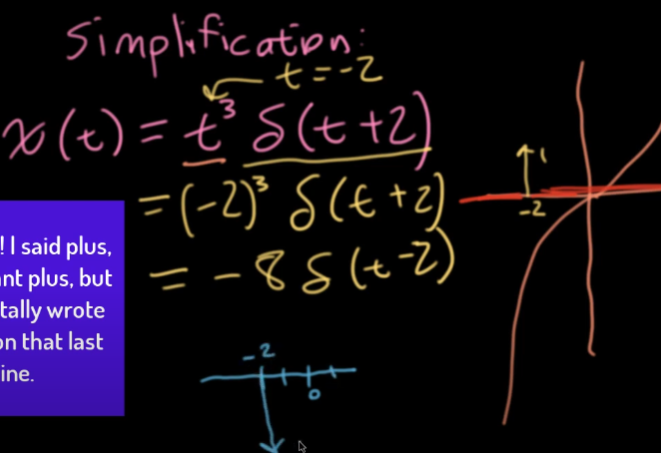 Simplification:
t = -2
x(t) = t³ δ(t+2)
= (-2)³ δ(t+2)
= -8 δ(t-2)
! I said plus,
nt plus, but
tally wrote
on that last
ine.
1
-2
-2
0